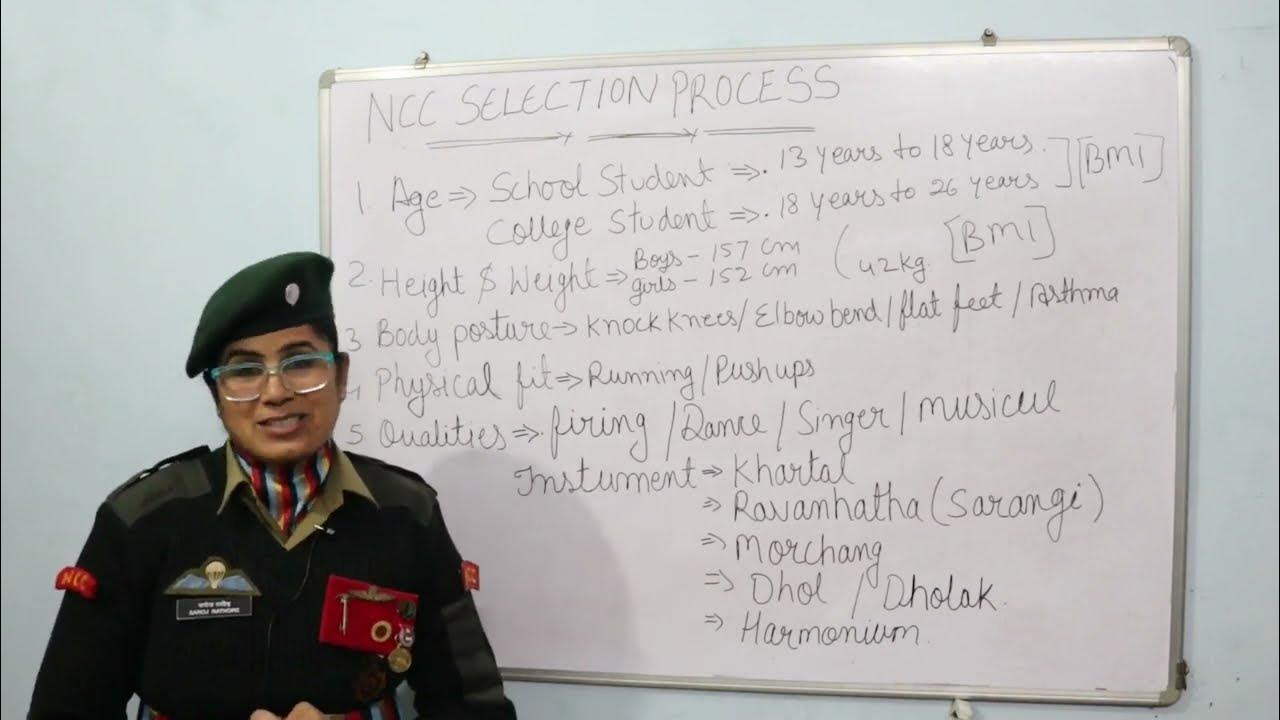 NCC SELECTION PROCESS
1. Age ⇒ School Student ⇒. 13 years to 18 years. ] [BMI]
College Student ⇒. 18 years to 26 years
2. Height & Weight ⇒ Boys - 157 cm ( 42kg. [BMI]
girls - 152 cm
3 Body posture → Knock Knees/ Elbow bend/ flat feet / Asthma
4 Physical fit ⇒ Running/Pushups
5 Qualities ⇒. firing / Dance / Singer / musicul
Instument ⇒ Khartal
⇒ Ravanhatha (Sarangi)
⇒ Morchang
⇒ Dhol / Dholak.
⇒ Harmonium.
NCC
NCC
सरोज राठौड़
SAROJ RATHORE